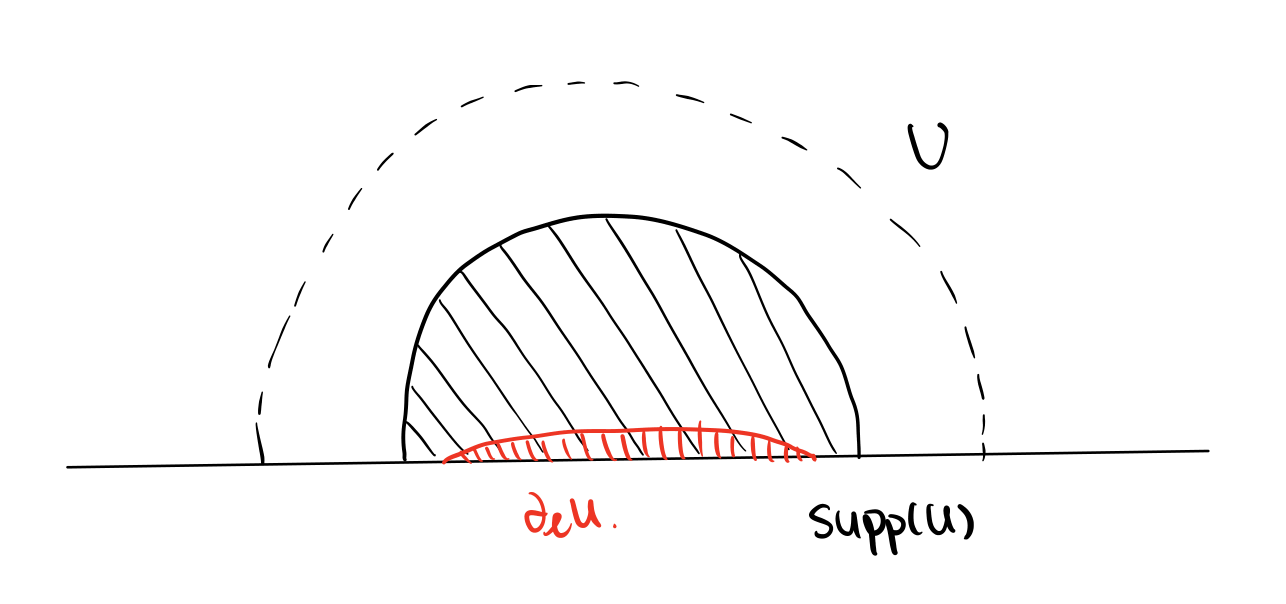 U
∂ₑu.
supp(u)